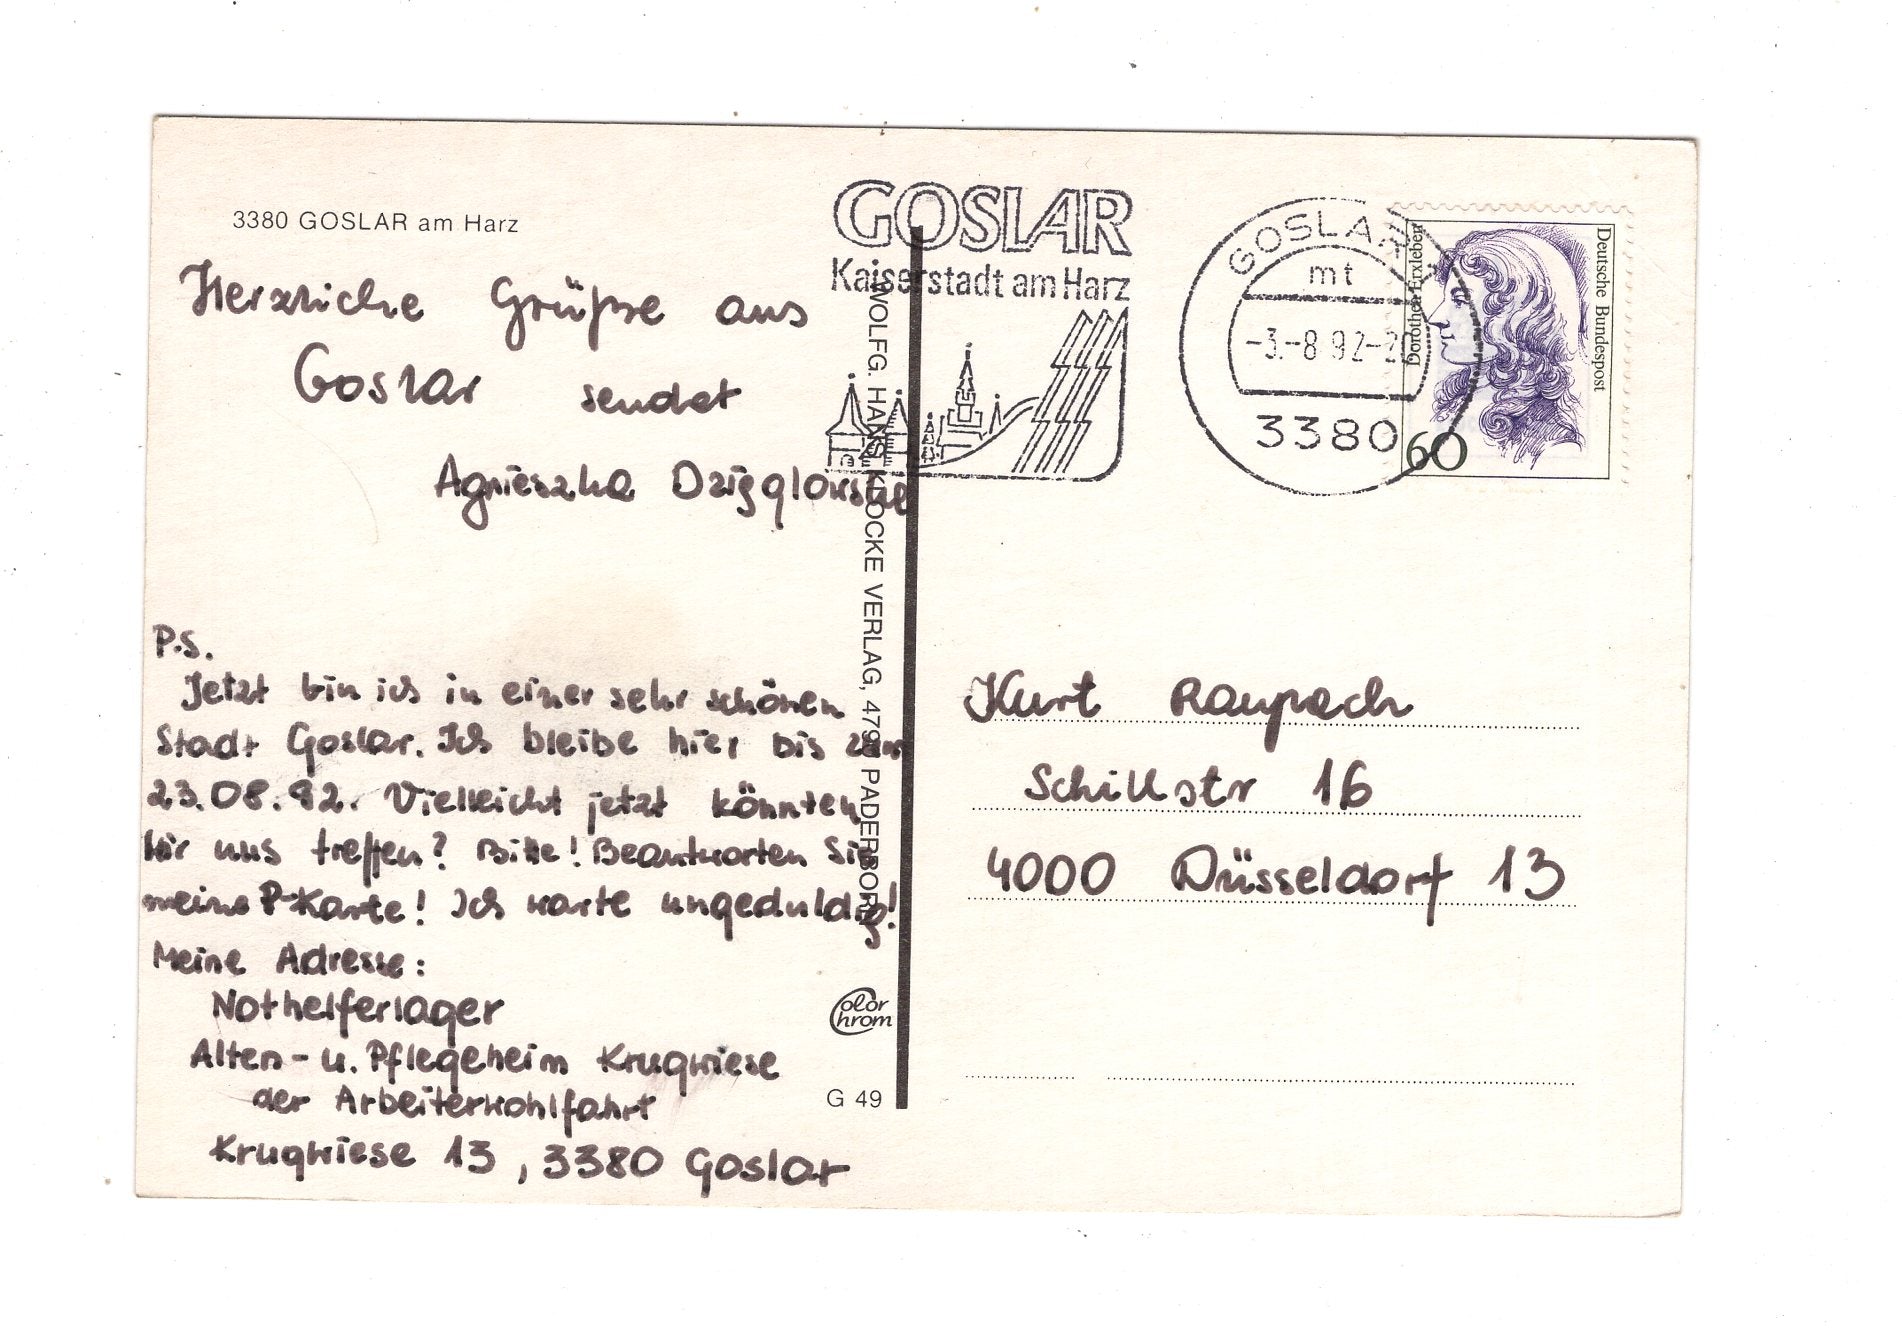 3380 GOSLAR am Harz
Herzliche Grüße aus
Goslar sendet
Agnieszka
P.S.
Jetzt bin ich in einer sehr schönen
Stadt Goslar. Ich bleibe hier bis zum
23.08.92. Vielleicht jetzt könnten
wir uns treffen? Bitte! Beantworten Sie
meine P-Karte! Ich warte ungeduldig!
Meine Adresse:
Nothelferlager
Alten- u. Pflegeheim Krugwiese
der Arbeiterwohlfahrt
Krugwiese 13, 3380 Goslar
WOLFG. HANS KLOCKE VERLAG, 4790 PADERBORN
Color
Chrom
G 49
GOSLAR
Kaiserstadt am Harz
GOSLAR
mt
-3.-8.92-20
3380
Dorothea Erxleben
Deutsche Bundespost
60
Kurt Raupach
Schillstr 16
4000 Düsseldorf 13